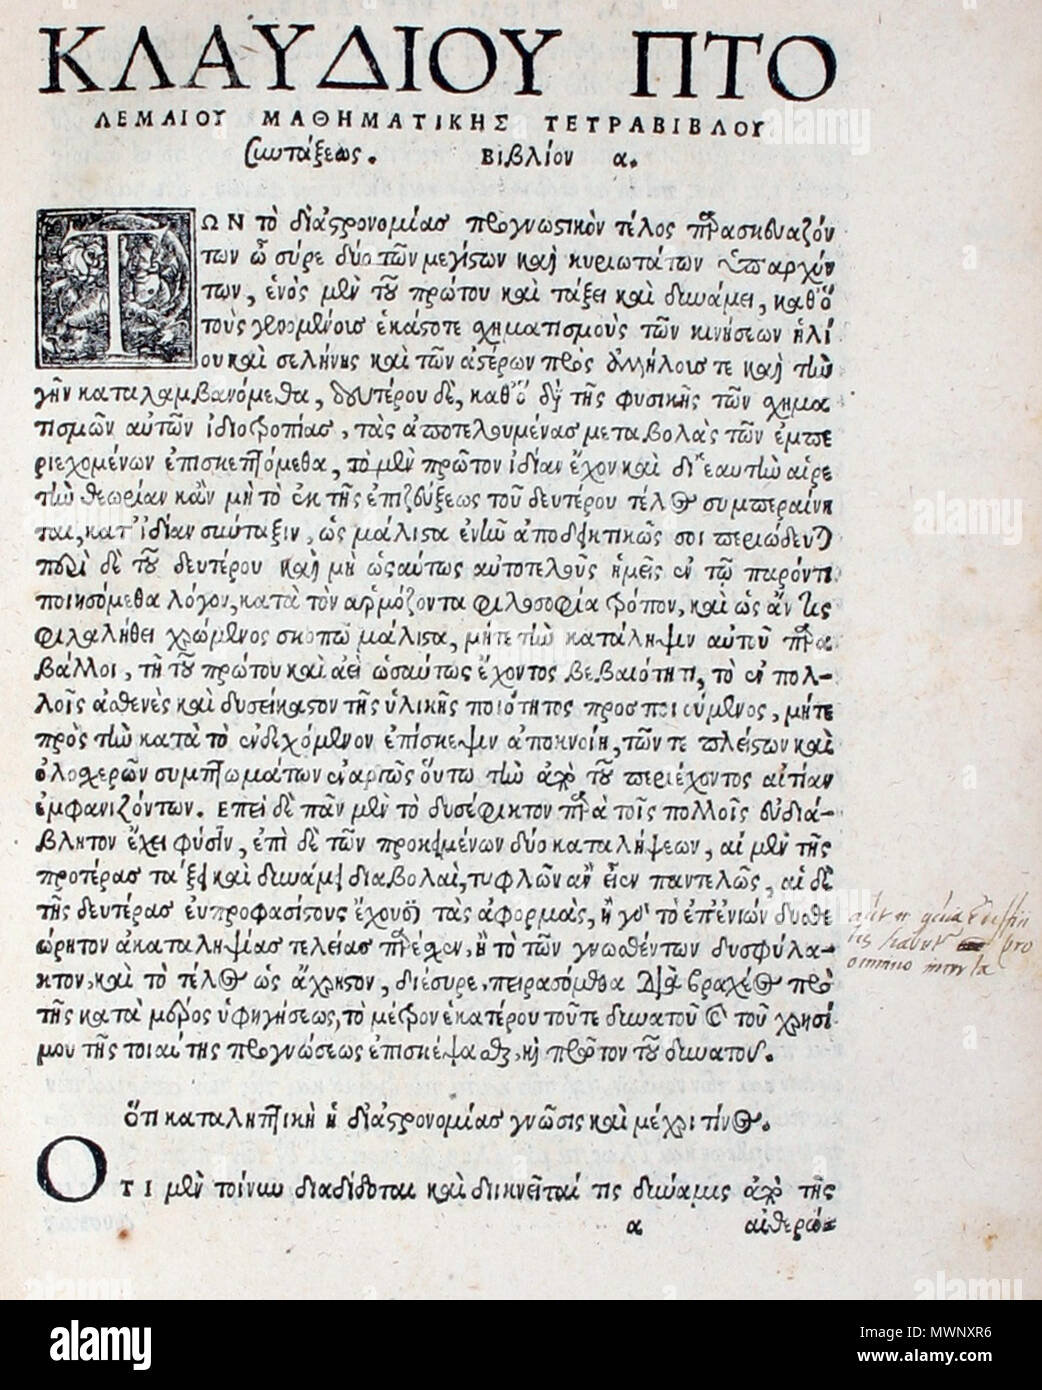 ΚΛΑΥΔΙΟΥ ΠΤΟ
ΛΕΜΑΙΟΥ ΜΑΘΗΜΑΤΙΚΗΣ ΤΕΤΡΑΒΙΒΛΟΥ
Συντάξεως. Βιβλίον α.
ΤΩΝ τὸ δἰ ἀστρονομίας προγνωστικὸν τέλος παρασκευαζόν
των ὦ σύρε δύο τῶν μεγίστων καὶ κυριωτάτων ὑπαρχόν
των, ἑνὸς μὲν τοῦ πρώτου καὶ τάξει καὶ δυνάμει, καθ' ὃ
τοὺς γινομένους ἑκάστοτε σχηματισμοὺς τῶν κινήσεων ἡλί
ου καὶ σελήνης καὶ τῶν ἀστέρων πρὸς ἀλλήλους τε καὶ τὴν
γῆν καταλαμβανόμεθα, δευτέρου δὲ, καθ' ὃ διὰ τῆς φυσικῆς τῶν σχημα
τισμῶν αὐτῶν ἰδιοτροπίας, τὰς ἀποτελουμένας μεταβολὰς τῶν ἐμπε
ριεχομένων ἐπισκεπτόμεθα, τὸ μὲν πρῶτον ἰδίαν ἔχον καὶ δι' ἑαυτὴν αἱρε
τὴν θεωρίαν κἂν μὴ τὸ ἐκ τῆς ἐπιζεύξεως τοῦ δευτέρου τέλος συμπεραίνη
ται, κατ' ἰδίαν σύνταξιν, ὡς μάλιστα ἐνῆν ἀποδεικτικῶς σοι περιώδευται
περὶ δὲ τοῦ δευτέρου καὶ μὴ ὡσαύτως αὐτοτελοῦς ἡμεῖς ἐν τῷ παρόντι
ποιησόμεθα λόγον, κατὰ τὸν ἁρμόζοντα φιλοσοφία τρόπον, καὶ ὡς ἄν τις
φιλαλήθει χρώμενος σκοπῷ μάλιστα, μήτε τὴν κατάληψιν αὐτοῦ παρα
βάλλοι, τῇ τοῦ πρώτου καὶ ἀεὶ ὡσαύτως ἔχοντος βεβαιότητι, τὸ ἐν πολ-
λοῖς ἀσθενὲς καὶ δυσείκαστον τῆς ὑλικῆς ποιότητος προσποιούμενος, μήτε
πρὸς τὴν κατὰ τὸ ἐνδεχόμενον ἐπίσκεψιν ἀποκνοίη, τῶν τε πλείστων καὶ
ὁλοσχερῶν συμπτωμάτων ἐναργῶς οὕτω τὴν ἀπὸ τοῦ περιέχοντος αἰτίαν
ἐμφανιζόντων. Επεὶ δὲ πᾶν μὲν τὸ δυσέφικτον παρὰ τοῖς πολλοῖς εὐδιά-
βλητον ἔχει φύσιν, ἐπὶ δὲ τῶν προκειμένων δύο καταλήψεων, αἱ μὲν τῆς
προτέρας τάξει καὶ δυνάμει διαβολαὶ, τυφλῶν ἂν εἶεν παντελῶς, αἱ δὲ
τῆς δευτέρας εὐπροφασίστους ἔχουσι τὰς ἀφορμὰς, ἢ γὰρ τὸ ἐπ' ἐνίων δυσθε
ώρητον ἀκαταληψίας τελείας παρέσχεν, ἢ τὸ τῶν γνωσθέντων δυσφύλα-
κτον, καὶ τὸ τέλος ὡς ἄχρηστον, διέσυρε, πειρασόμεθα διὰ βραχέος πρὸ
τῆς κατὰ μέρος ὑφηγήσεως, τὸ μέτρον ἑκατέρου τοῦτε δυνατοῦ καὶ τοῦ χρησί
μου τῆς τοιαύτης προγνώσεως ἐπισκέψασθαι, καὶ πρῶτον τοῦ δυνατοῦ.
Ὅτι καταληπτικὴ ἡ δἰ ἀστρονομίας γνῶσις καὶ μέχρι τίνος.
ΟΤΙ μὲν τοίνυν διαδίδοται καὶ διικνεῖται τις δύναμις ἀπὸ τῆς
α αἰθερώ-
alamy
Image ID: MWNXR6
www.alamy.com